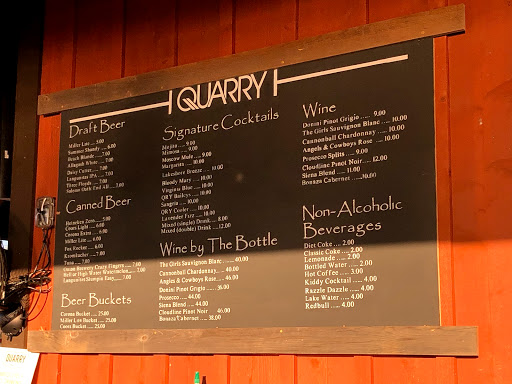 QUARRY
Draft Beer
Miller Lite ..... 3.00
Summer Shandy ..... 6.00
Beach Blonde ..... 7.00
Allagash White ..... 7.00
Daisy Cutter ..... 7.00
Langunitas IPA ..... 7.00
Titos Floyds ..... 7.00
Canned Beer
Heineken Zero
Coors Light ..... 6.00
Corona Extra
Miller Lite
Fox Rocker
Krombacher
Hell or High Water Watermelon
Langunitas Sumpin Easy ..... 7.00
Beer Buckets
Corona Bucket ..... 25.00
Miller Lite Bucket ..... 25.00
Coors Bucket ..... 25.00
Signature Cocktails
Mojito ..... 9.00
Mimosa ..... 9.00
Moscow Mule ..... 9.00
Margarita ..... 10.00
Lakeshore Breeze ..... 11.00
Bloody Mary ..... 10.00
Virginia Blue ..... 10.00
QRY Baileys ..... 10.00
Sangria ..... 10.00
QRY Cooler ..... 10.00
Lavender Fuzz ..... 10.00
Mixed (single) Drink ..... 8.00
Mixed (double) Drink ..... 12.00
Wine by The Bottle
The Girls Sauvignon Blanc ..... 40.00
Cannonball Chardonnay ..... 40.00
Angles & Cowboys Rose ..... 46.00
Donini Pinot Grigio ..... 36.00
Prosecco ..... 44.00
Siena Blend ..... 44.00
Cloudline Pinot Noir ..... 46.00
Bonaza/Cabernet ..... 38.00
Wine
Donini Pinot Grigio ..... 9.00
The Girls Sauvignon Blanc ..... 10.00
Cannonball Chardonnay ..... 10.00
Angels & Cowboys Rose ..... 10.00
Prosecco Splits ..... 9.00
Cloudline Pinot Noir ..... 12.00
Siena Blend ..... 11.00
Bonaza Cabernet ..... 10.00
Non-Alcoholic
Beverages
Diet Coke ..... 2.00
Classic Coke ..... 2.00
Lemonade ..... 2.00
Bottled Water ..... 2.00
Hot Coffee ..... 3.00
Kiddy Cocktail ..... 4.00
Razzle Dazzle ..... 4.00
Lake Water ..... 4.00
Redbull ..... 4.00
QUARRY